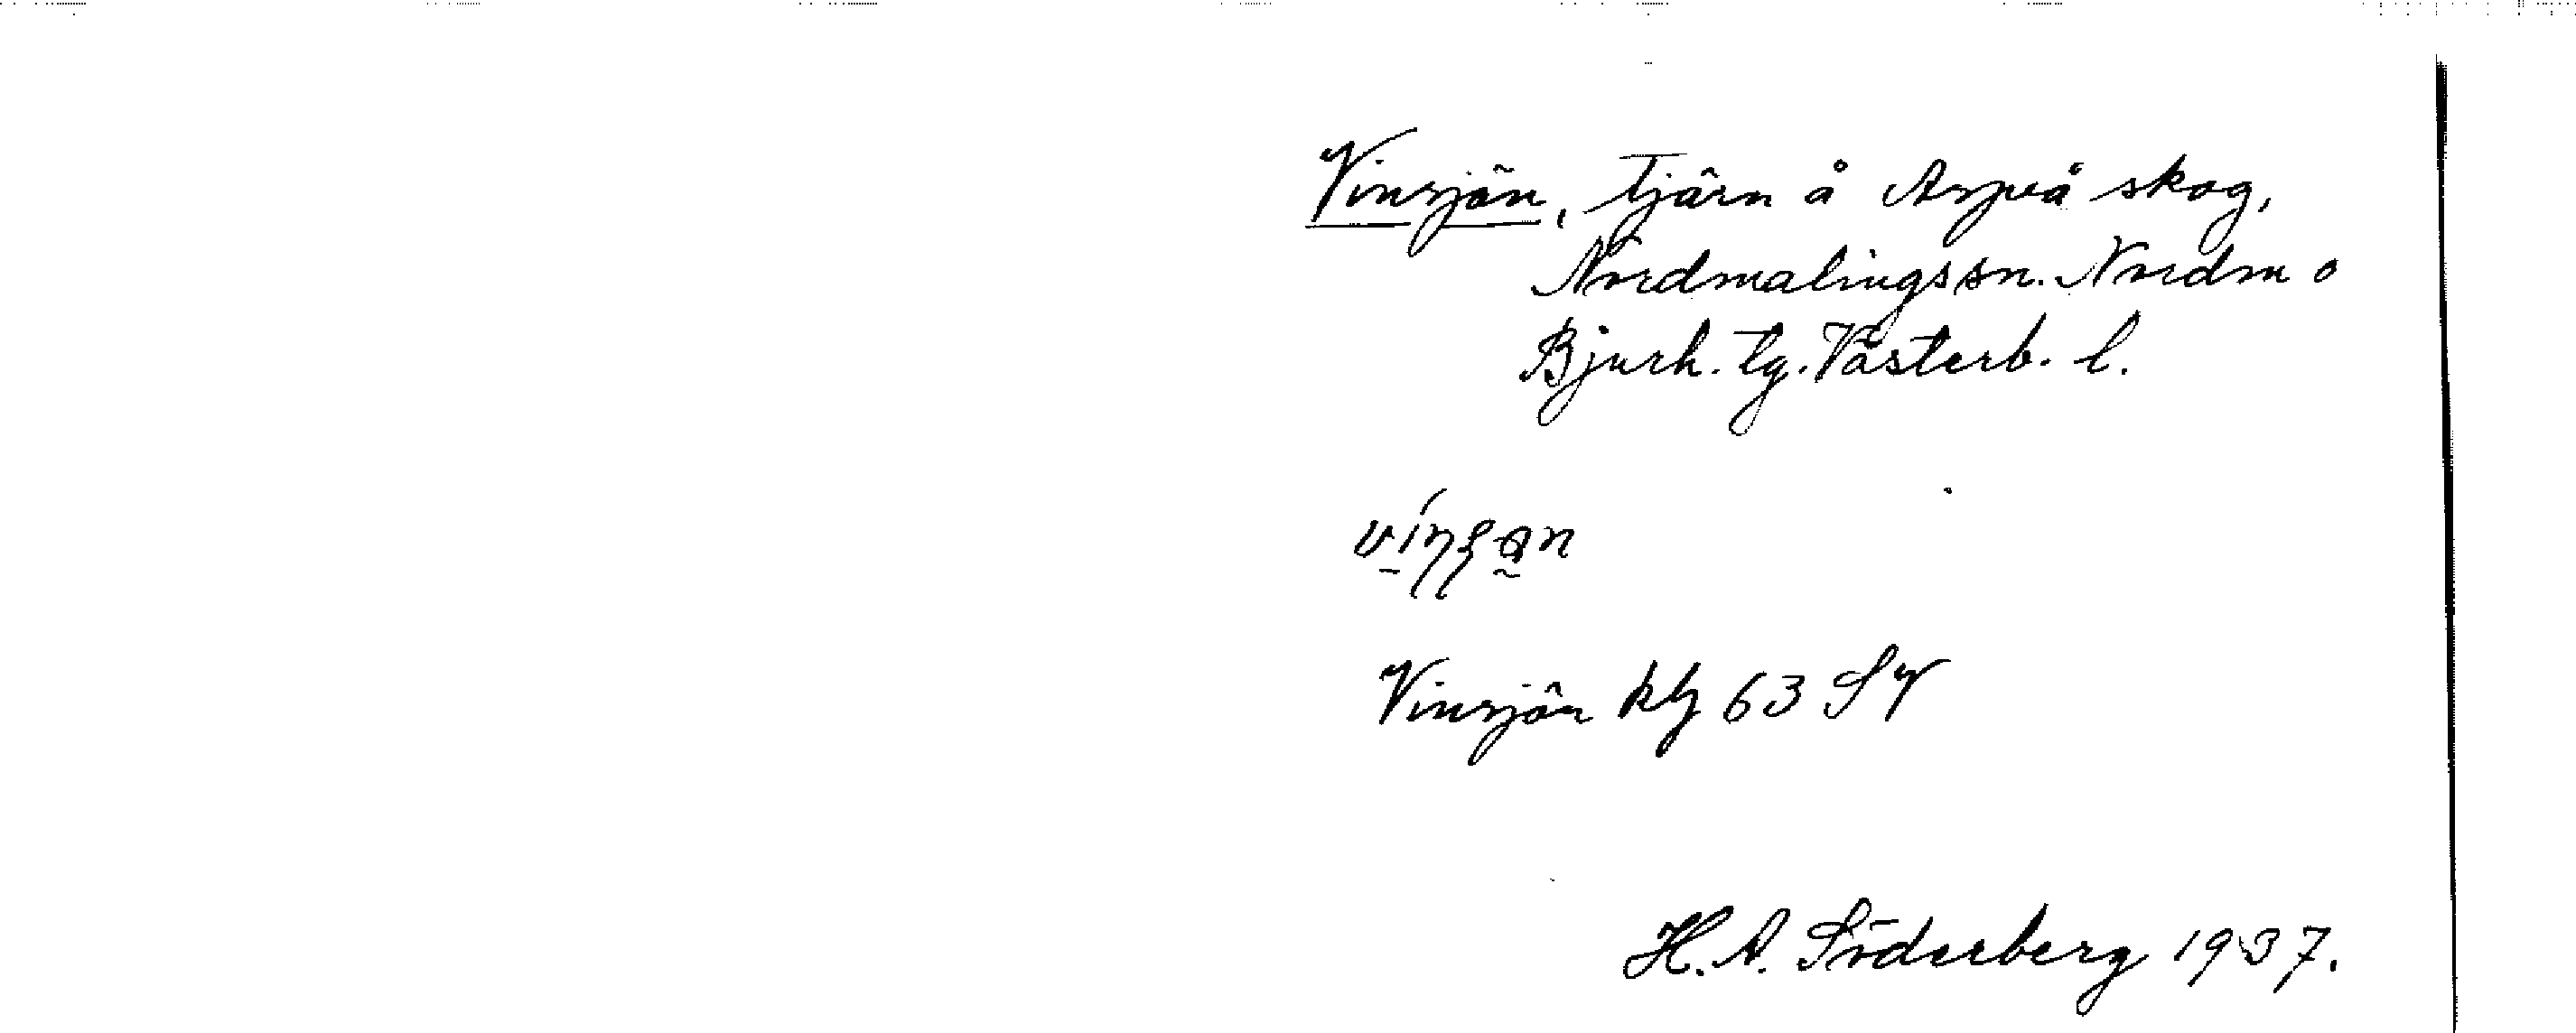 Vinsjön, tjärn å Aspeå skog,
Nordmalingssn. Nordm o
Bjurh. tg. Västerb. l.
Vinsjön kbl 63 SV
H. A. Söderberg 1937.